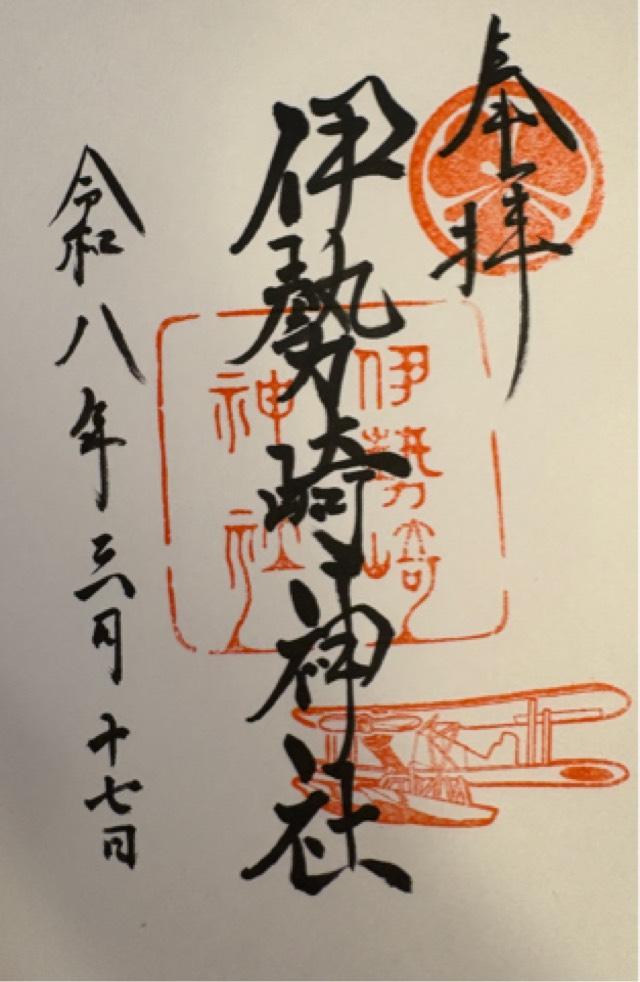 奉拝
伊勢崎神社
伊勢崎
神社
令和八年三月十七日